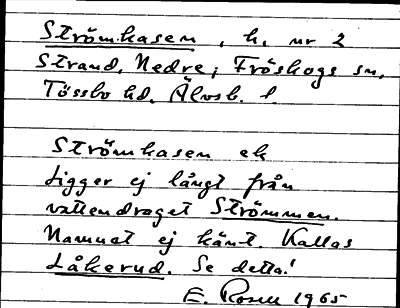 Strömkasen, h. nr 2
Strand, Nedre; Fröskogs sn,
Tössbo hd. Älvsb. l.
Strömkasen ek
Ligger ej långt från
vattendraget Strömmen.
Namnet ej känt. Kallas
Låkerud. Se detta!
E. Rosell 1965